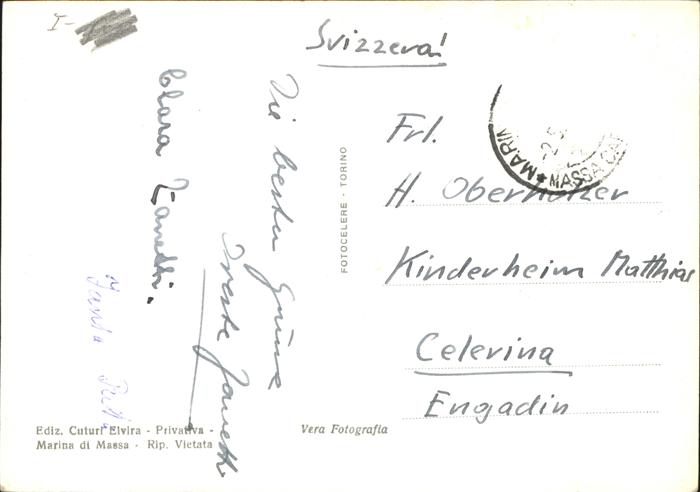 I-
Svizzera!
Die besten Grüsse
Oreste Zanetti
Clara Zanetti.
Frl.
H. Oberholzer
Kinderheim Matthias
Celerina
Engadin
MARIN
MASSA CAR
FOTOCELERE - TORINO
Ediz. Cuturi Elvira - Privativa -
Marina di Massa - Rip. Vietata
Vera Fotografia